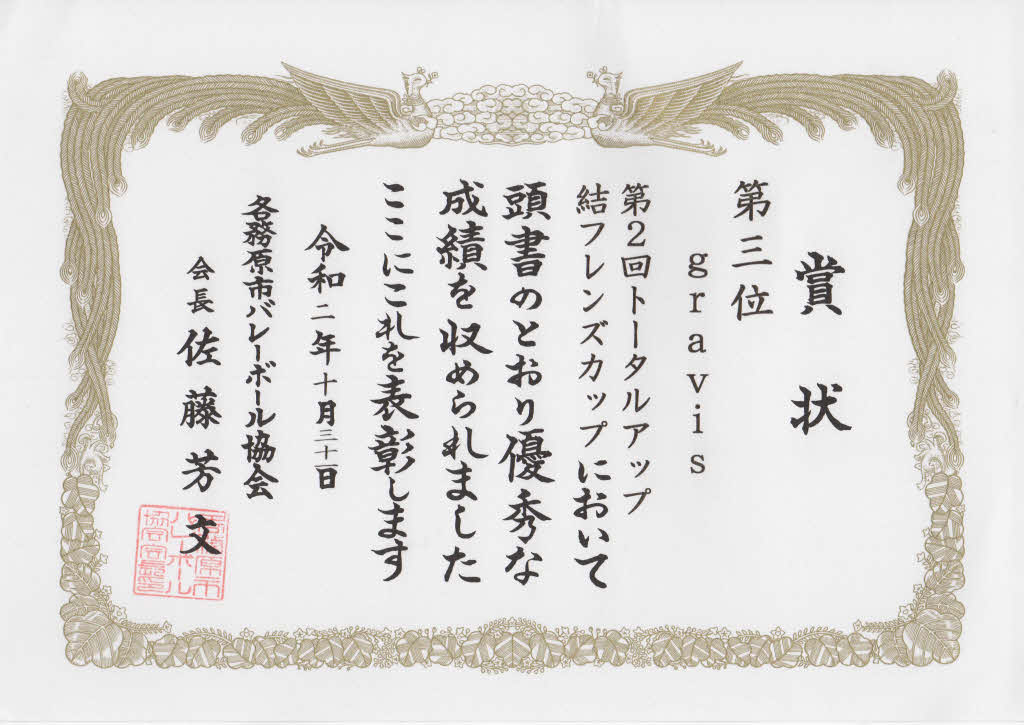 賞状
第三位
gravis
第2回トータルアップ
結フレンズカップにおいて
頭書のとおり優秀な
成績を収められました
ここにこれを表彰します
令和二年十月三十一日
各務原市バレーボール協会
会長 佐藤芳文